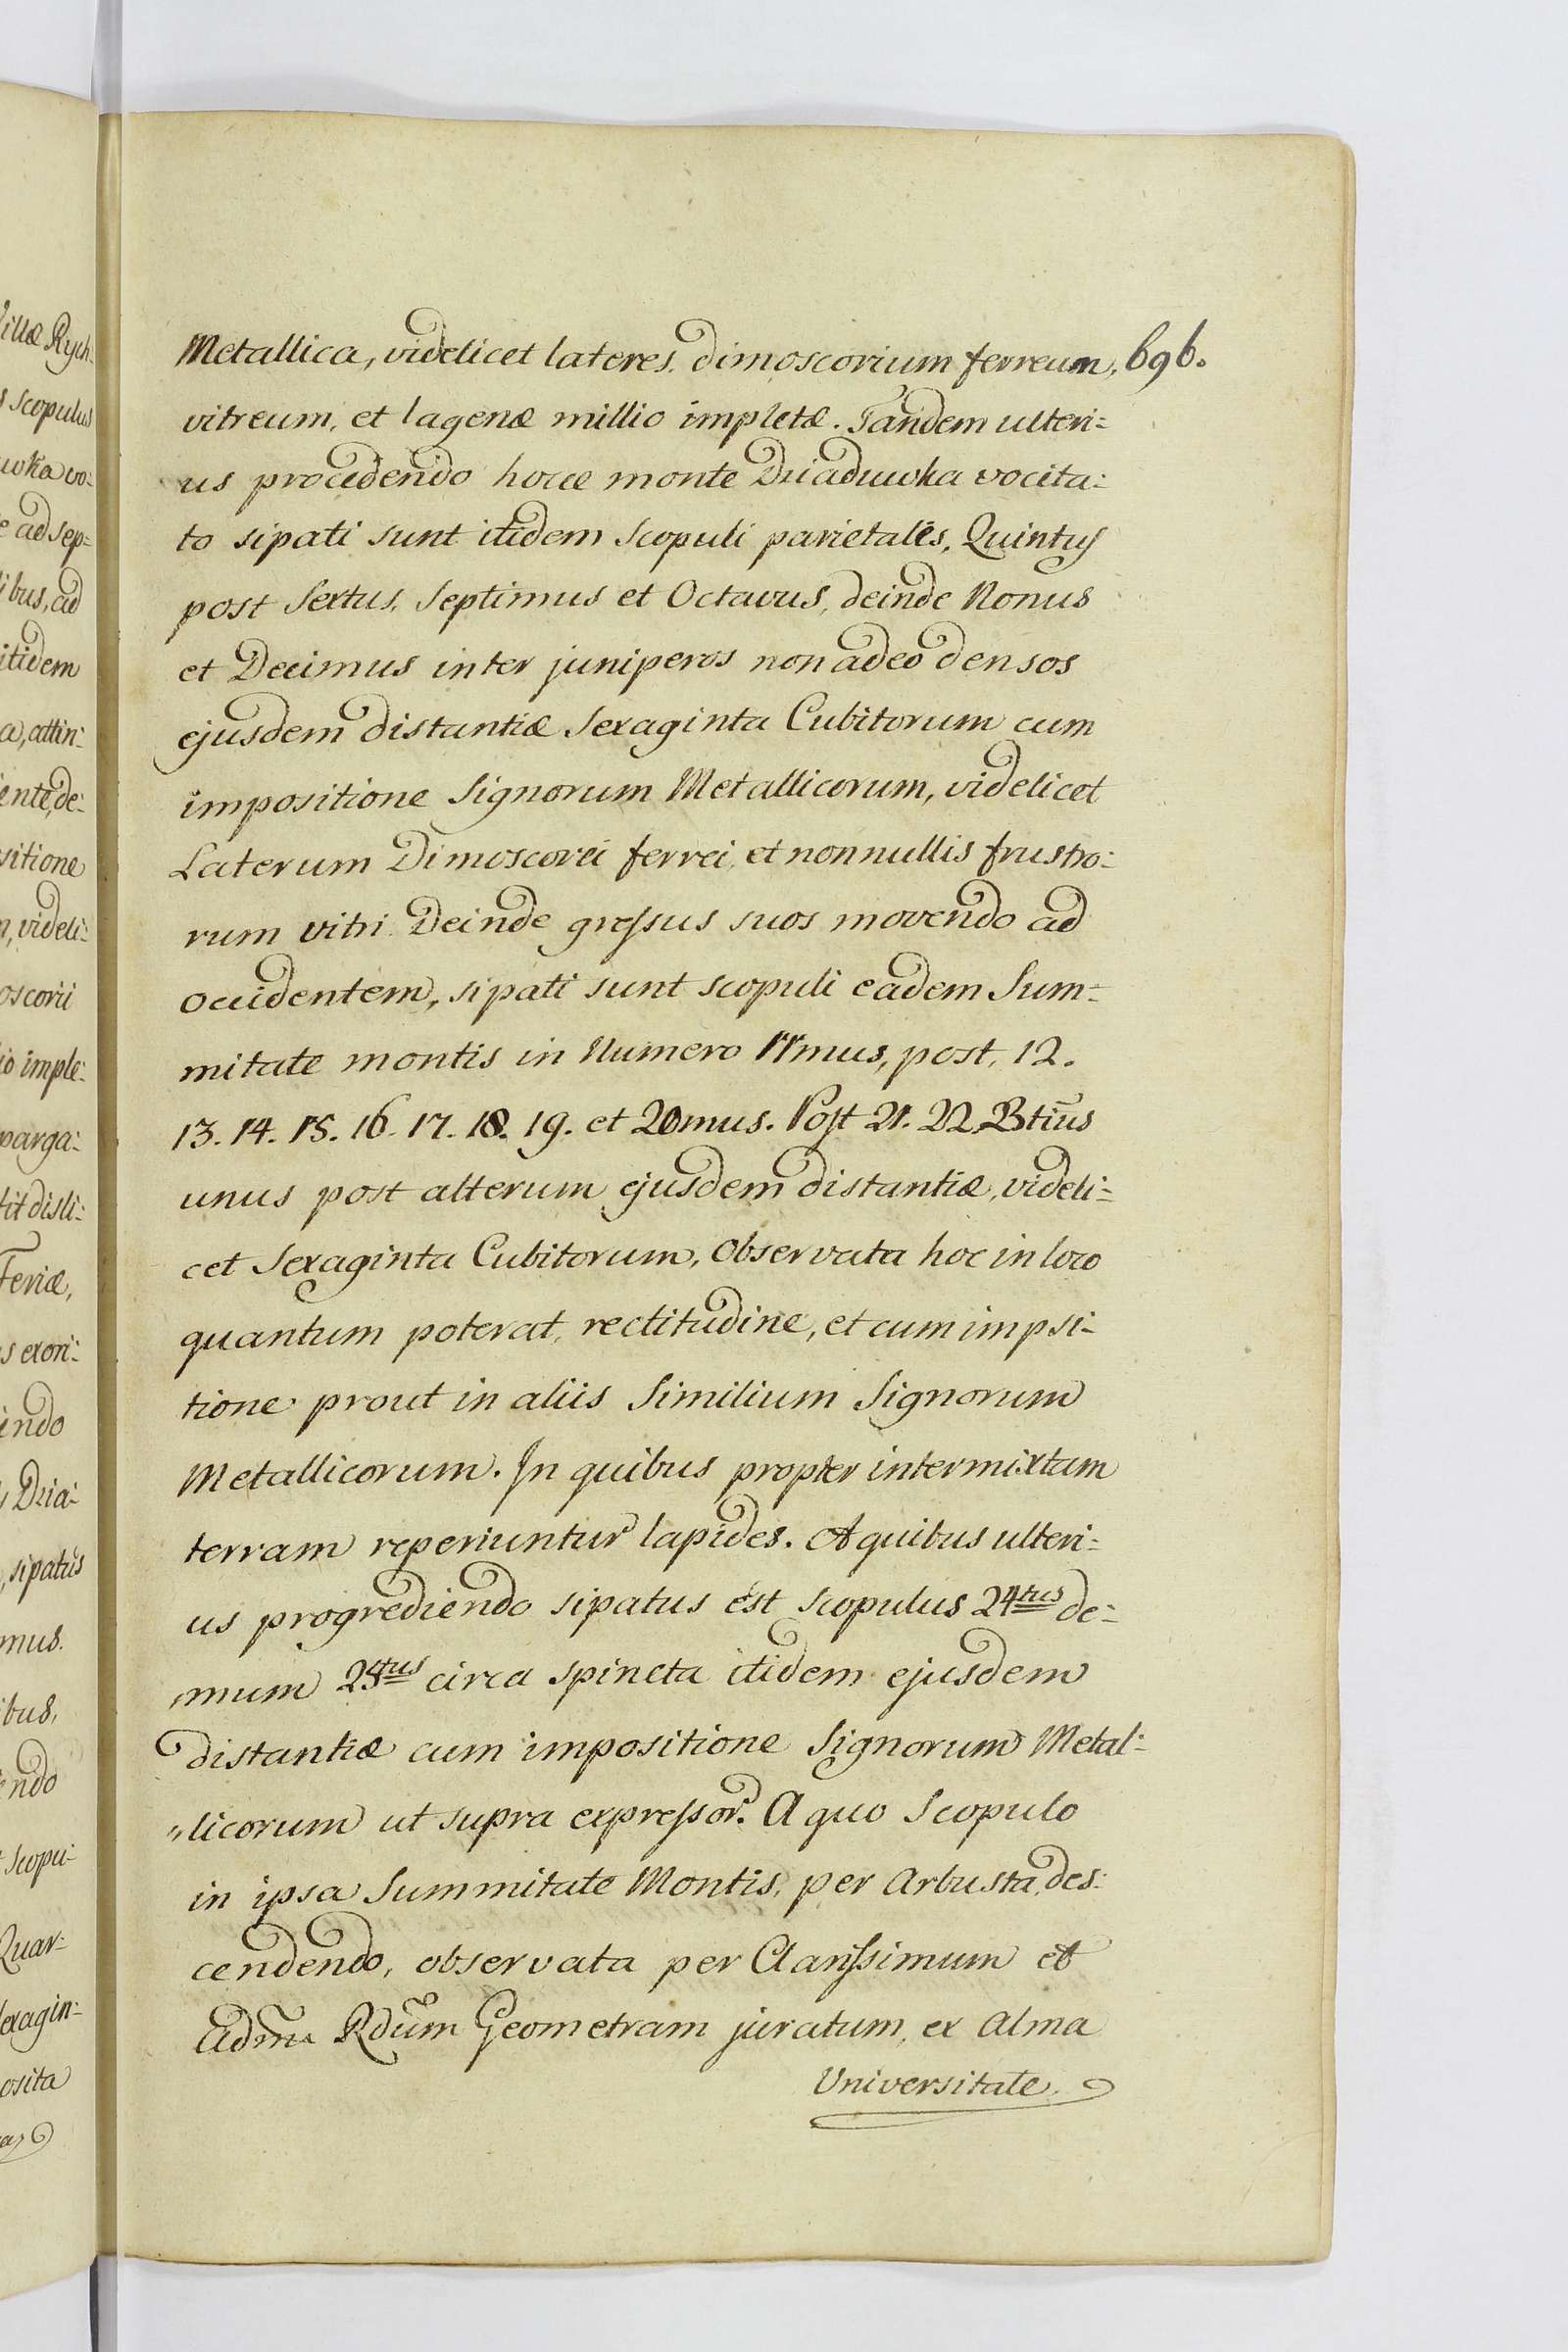 Metallica, videlicet lateres, dimoscorium ferreum, 696.
vitreum, et lagenæ millio impletæ. Tandem ulteri=
us procedendo hocce monte Driaduwka vocita=
to sipati sunt itidem Scopuli parietales, Quintus
post Sextus, Septimus et Octavus, deinde Nonus
et Decimus inter juniperos non adeo densos
ejusdem distantiæ Sexaginta Cubitorum cum
impositione Signorum Metallicorum, videlicet
Laterum Dimoscorei ferrei, et nonnullis frustro=
rum vitri. Deinde gressus suos movendo ad
occidentem, sipati sunt scopuli eadem Sum=
mitate montis in Numero 11mus, post, 12.
13. 14. 15. 16. 17. 18. 19. et 20mus. Post 21. 22. 23tius
unus post alterum ejusdem distantiæ, videli=
cet Sexaginta Cubitorum, Observata hoc in loco
quantum poterat, rectitudine, et cum impsi=
tione prout in aliis Similium Signorum
Metallicorum. In quibus propter intermixtam
terram reperiuntur lapides. A quibus ulteri=
us progrediendo sipatus est scopulus 24tus de=
mum 25tus circa spineta itidem ejusdem
distantiæ cum impositione Signorum Metal=
"licorum ut supra expressor. A quo Scopulo
in ipsa Summitate Montis, per Arbusta, des=
cendendo, observata per Clarissimum et
Admu Rdum Geometram juratum, ex Alma
Universitate
illæ Rych=
s scopulus
uwka vo=
e ad sep=
ibus, ad
itidem
a, attin=
iente, de=
sitione
n, videli=
oscorii
io imple=
parga=
tit disli=
Feriæ,
s exori=
indo
, Dria=
, sipatus
mus.
ibus,
endo
t scopu=
Quar=
Sexagin=
osita